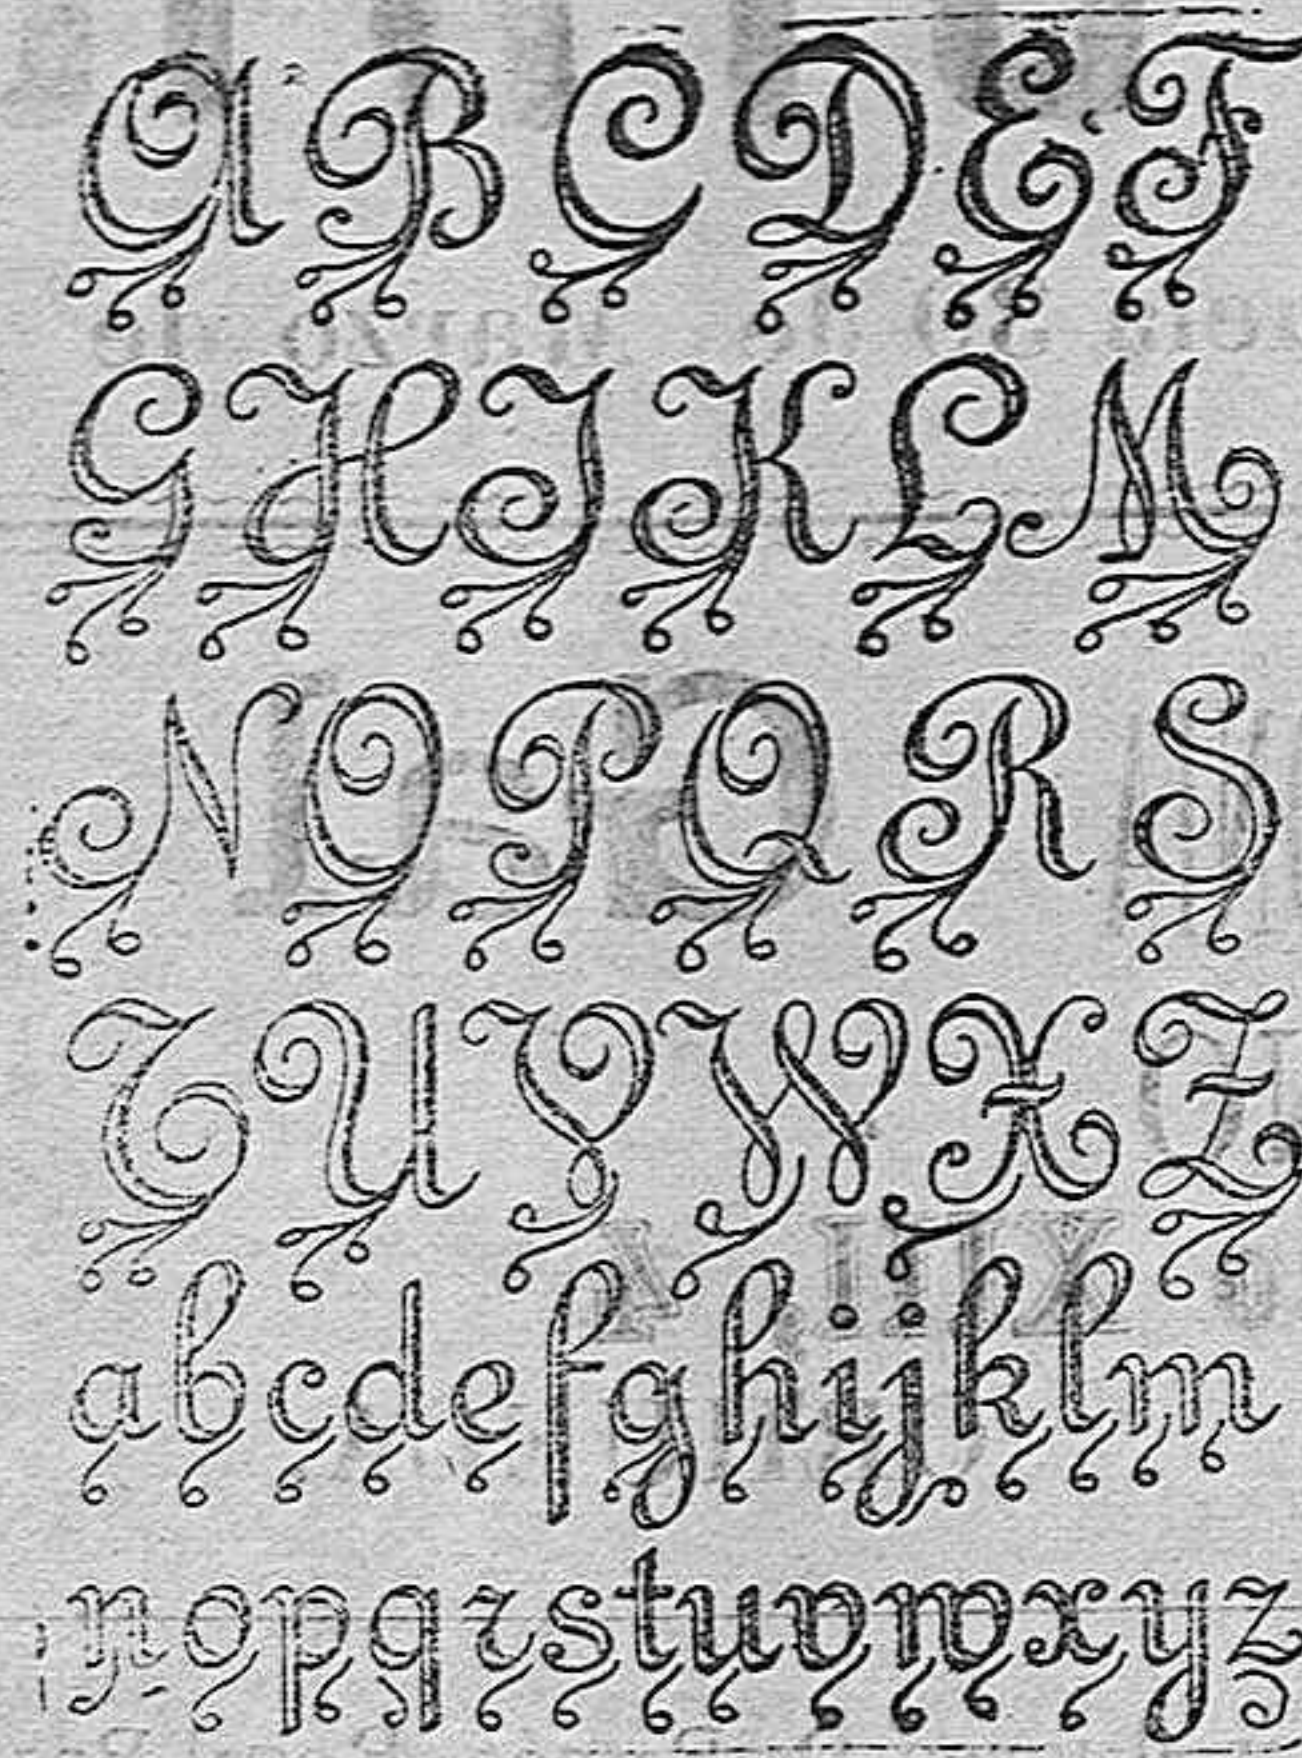 A B C D E F
G H J K L M
N O P Q R S
T U V W X Z
a b c d e f g h i j k l m
n o p q r s t u v w x y z